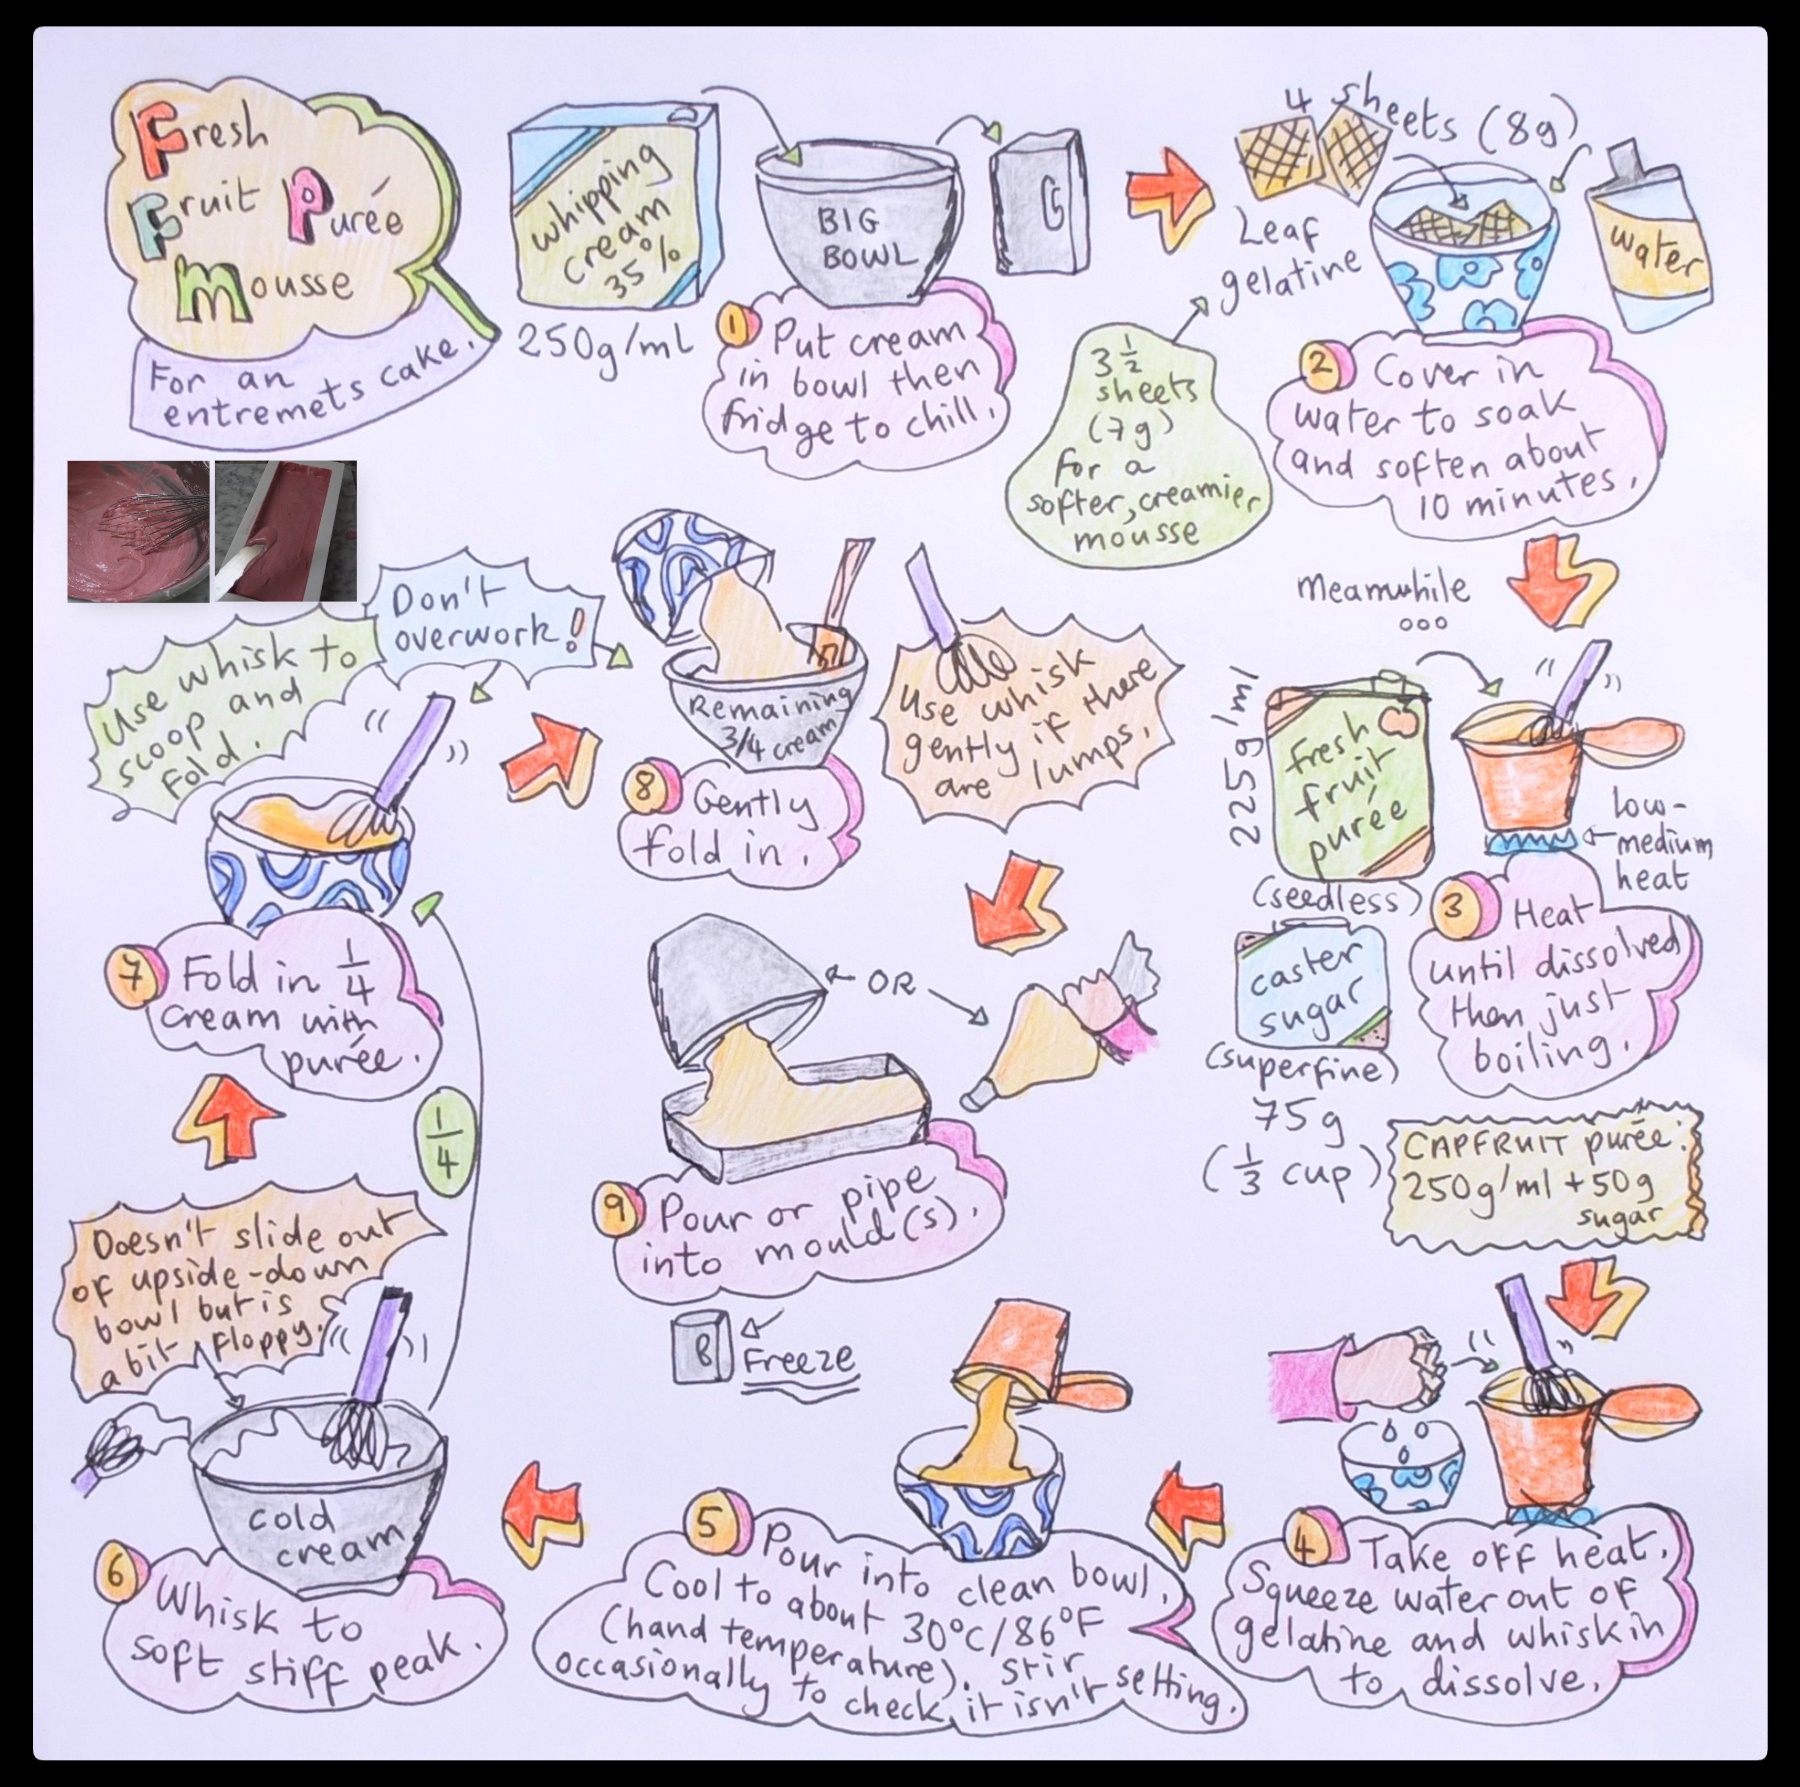 Fresh
Fruit Purée
Mousse
For an
entremets cake.
whipping
cream
35%
250g/ml
BIG
BOWL
1 Put cream
in bowl then
fridge to chill.
4 sheets (8g)
Leaf
gelatine
water
3 1/2
sheets
(7g)
for a
softer, creamier
mousse
2 Cover in
water to soak
and soften about
10 minutes.
Meanwhile
ooo
225g/ml
fresh
fruit
purée
(seedless)
caster
sugar
(superfine)
75g
(1/3 cup)
low-
medium
heat
3 Heat
until dissolved
then just
boiling.
CAPFRUIT purée:
250g/ml + 50g
sugar
4 Take off heat.
Squeeze water out of
gelatine and whisk in
to dissolve.
5 Pour into clean bowl.
Cool to about 30°C/86°F
(hand temperature). Stir
occasionally to check it isn't setting.
Doesn't slide out
of upside-down
bowl but is
a bit floppy.
cold
cream
6 Whisk to
soft stiff peak.
1/4
7 Fold in 1/4
cream with
purée.
Use whisk to
scoop and
fold.
Don't
overwork!
Remaining
3/4 cream
8 Gently
fold in.
Use whisk
gently if there
are lumps.
OR
9 Pour or pipe
into mould(s).
Freeze